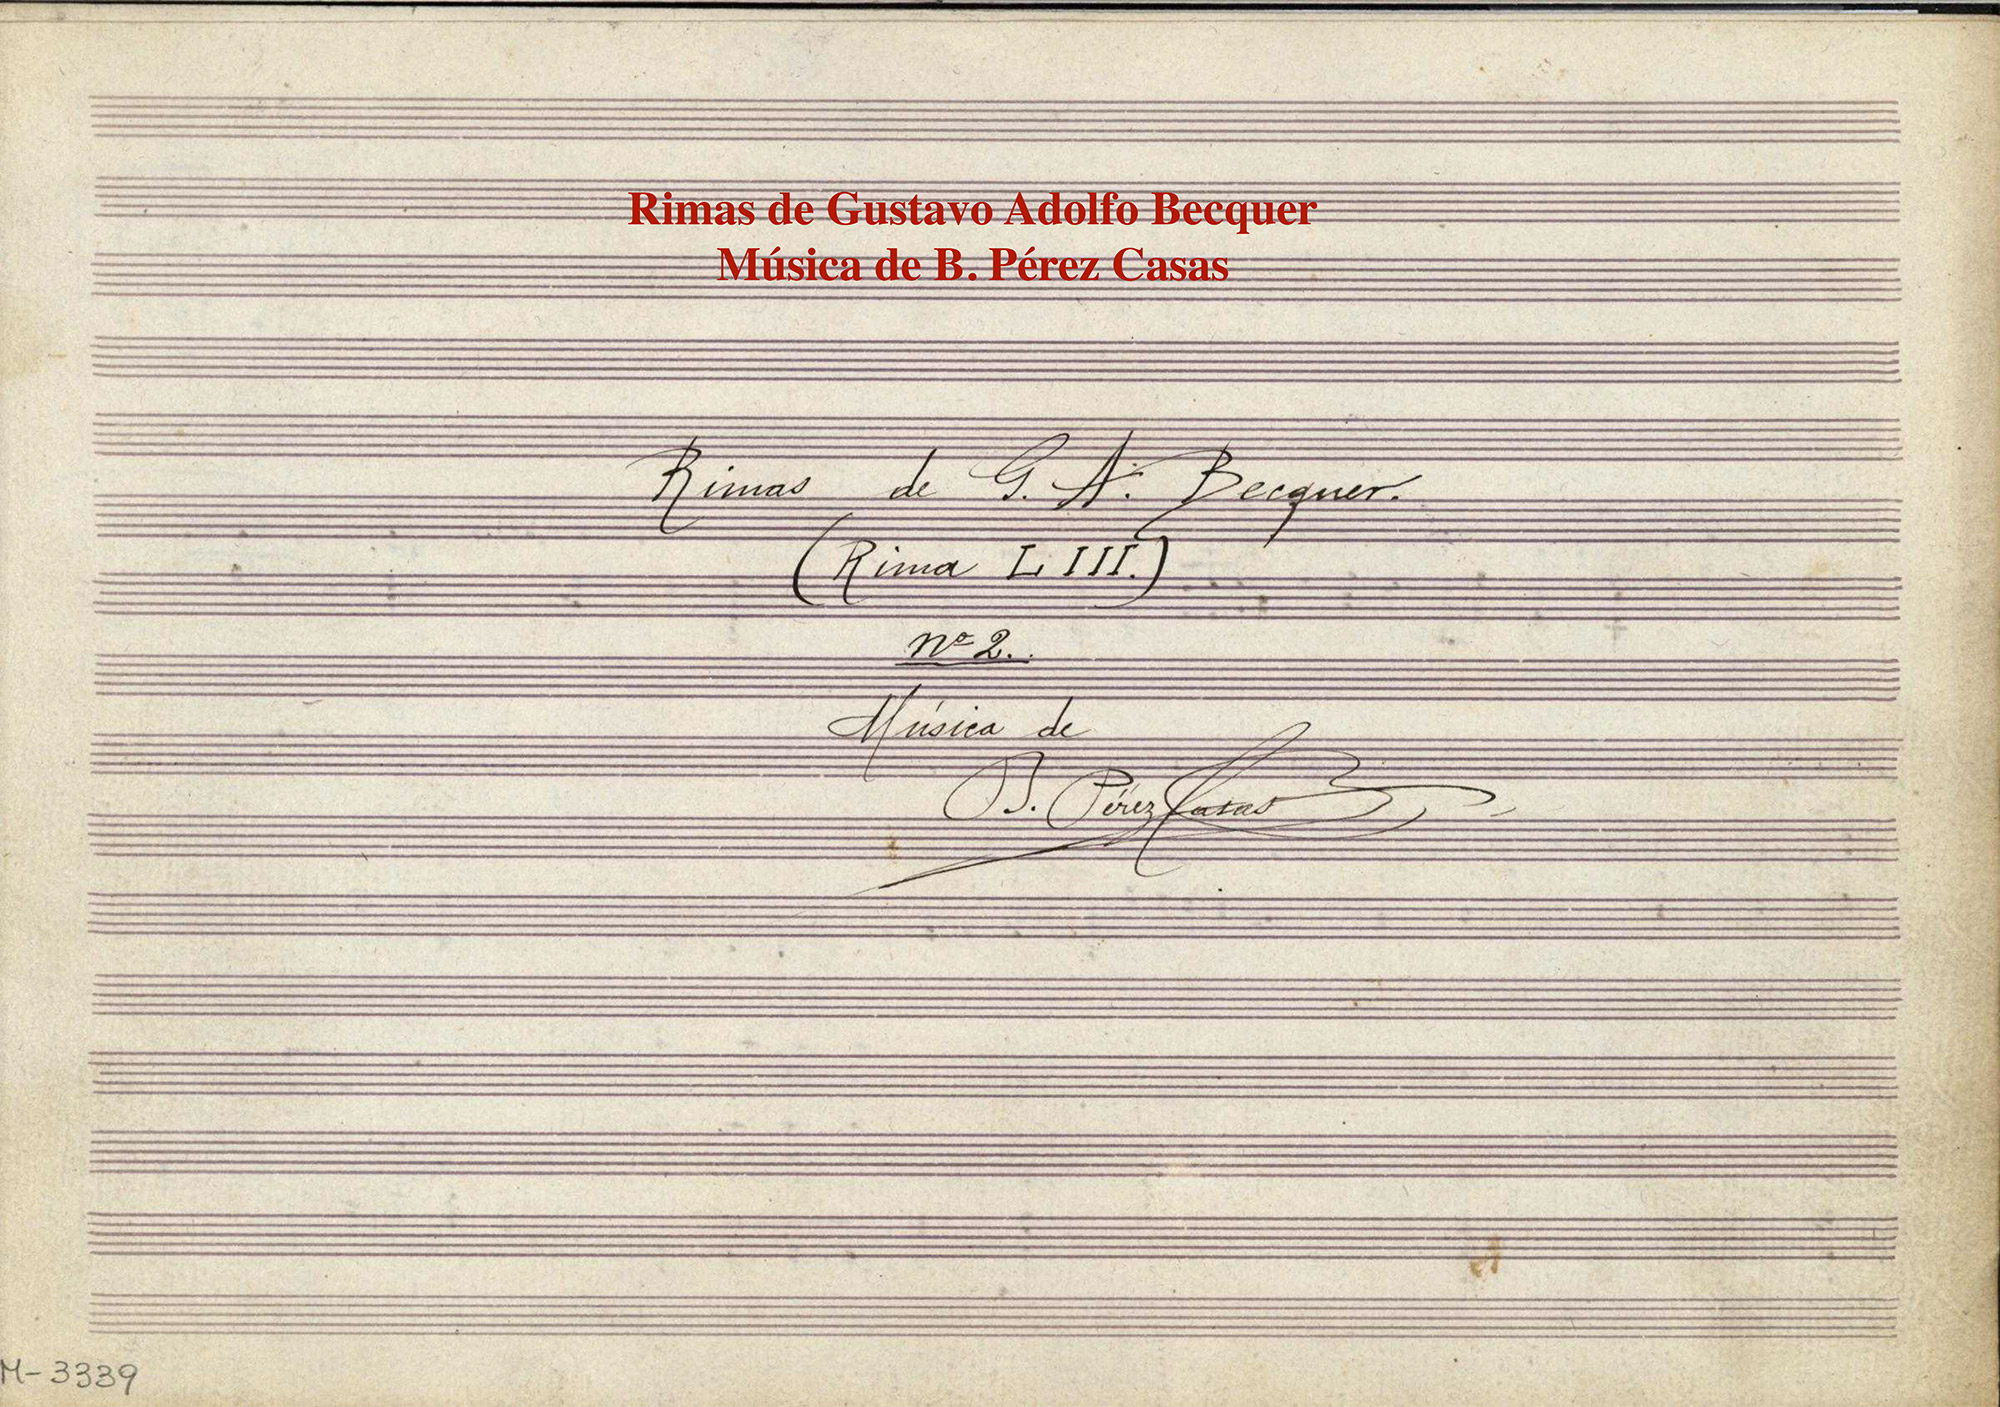 Rimas de Gustavo Adolfo Becquer
Música de B. Pérez Casas
Rimas de G. A. Becquer.
(Rima LIII.)
nº 2.
Música de
B. Pérez Casas
M-3339